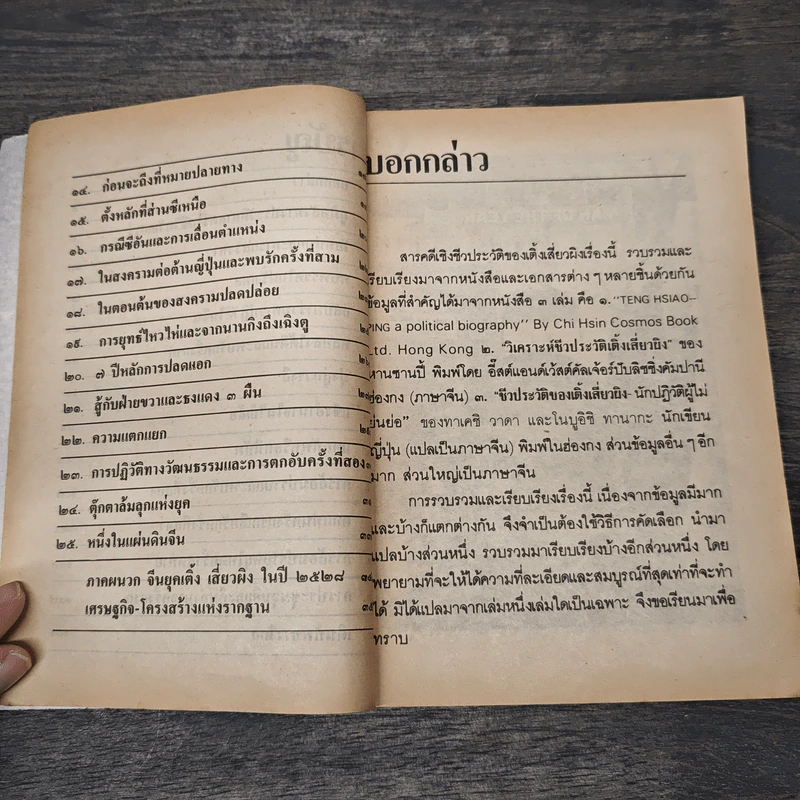 ๑๔. ก่อนจะถึงที่หมายปลายทาง
๑๕. ตั้งหลักที่ส่านซีเหนือ
๑๖. กรณีซีอันและการเลื่อนตำแหน่ง
๑๗. ในสงครามต่อต้านญี่ปุ่นและพบรักครั้งที่สาม
๑๘. ในตอนต้นของสงครามปลดปล่อย
๑๙. การยุทธ์ไหวไห่และจากนานกิงถึงเฉิงตู
๒๐. ๗ ปีหลักการปลดแอก
๒๑. สู้กับฝ่ายขวาและธงแดง ๓ ผืน
๒๒. ความแตกแยก
๒๓. การปฏิวัติทางวัฒนธรรมและการตกอับครั้งที่สอง
๒๔. ตุ๊กตาล้มลุกแห่งยุค
๒๕. หนึ่งในแผ่นดินจีน
ภาคผนวก จีนยุคเติ้ง เสี่ยวผิง ในปี ๒๕๒๘
เศรษฐกิจ-โครงสร้างแห่งรากฐาน
บอกกล่าว
สารคดีเชิงชีวประวัติของเติ้งเสี่ยวผิงเรื่องนี้ รวบรวมและ
เรียบเรียงมาจากหนังสือและเอกสารต่าง ๆ หลายชิ้นด้วยกัน
ข้อมูลที่สำคัญได้มาจากหนังสือ ๓ เล่ม คือ ๑. "TENG HSIAO-
PING a political biography" By Chi Hsin Cosmos Book
Ltd. Hong Kong ๒. "วิเคราะห์ชีวประวัติเติ้งเสี่ยวผิง" ของ
หานซานปี้ พิมพ์โดย อิ๊สต์แอนด์เวัสต์คัลเจ้อร์บีบลิซซิ่งคัมปานี
ฮ่องกง (ภาษาจีน) ๓. "ชีวประวัติของเติ้งเสี่ยวผิง-นักปฏิวัติผู้ไม่
ย่นย่อ" ของทาเคชิ วาดา และโนบูอิชิ ทานากะ นักเขียน
ญี่ปุ่น (แปลเป็นภาษาจีน) พิมพ์ในฮ่องกง ส่วนข้อมูลอื่น ๆ อีก
มาก ส่วนใหญ่เป็นภาษาจีน
การรวบรวมและเรียบเรียงเรื่องนี้ เนื่องจากข้อมูลมีมาก
และบ้างก็แตกต่างกัน จึงจำเป็นต้องใช้วิธีการคัดเลือก นำมา
แปลบ้างส่วนหนึ่ง รวบรวมมาเรียบเรียงบ้างอีกส่วนหนึ่ง โดย
พยายามที่จะให้ได้ความที่ละเอียดและสมบูรณ์ที่สุดเท่าที่จะทำ
ได้ มิได้แปลมาจากเล่มหนึ่งเล่มใดเป็นเฉพาะ จึงขอเรียนมาเพื่อ
ทราบ